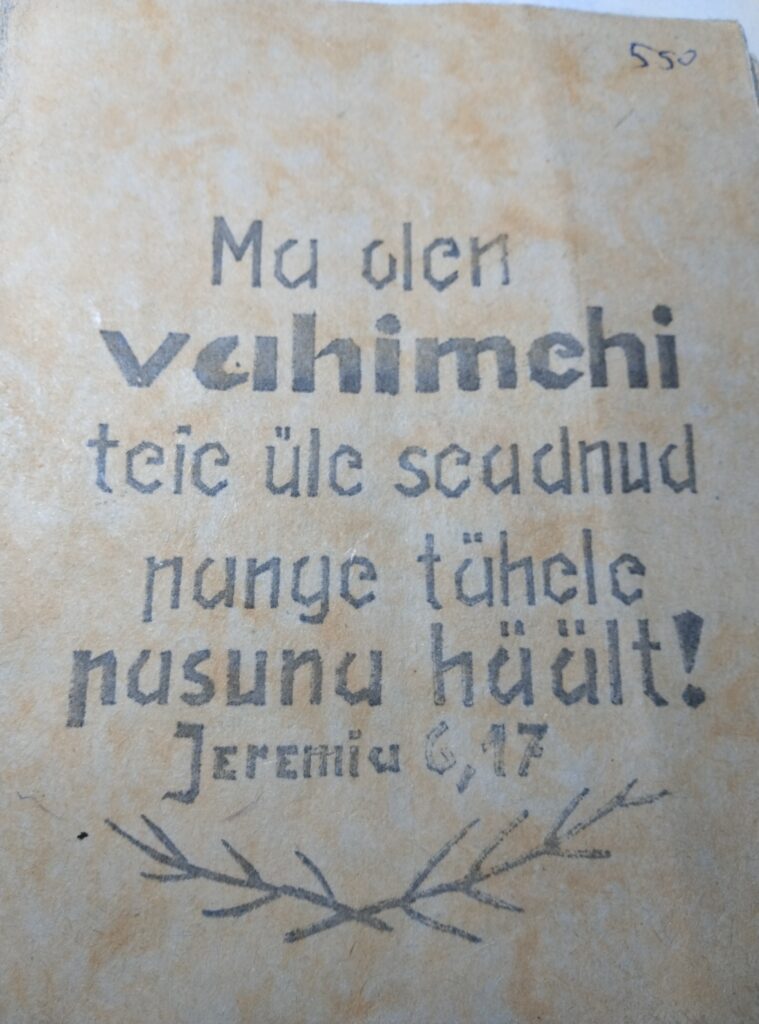 550
Ma olen
vahimehi
teie üle seadnud
pange tähele
pasuna häält!
Jeremia 6,17